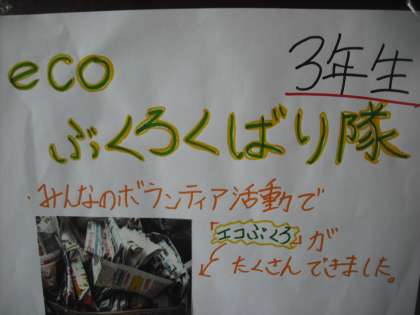 eco
3年生
ぶくろくばり隊
・みんなのボランティア活動で
「エコぶくろ」が
たくさんできました。